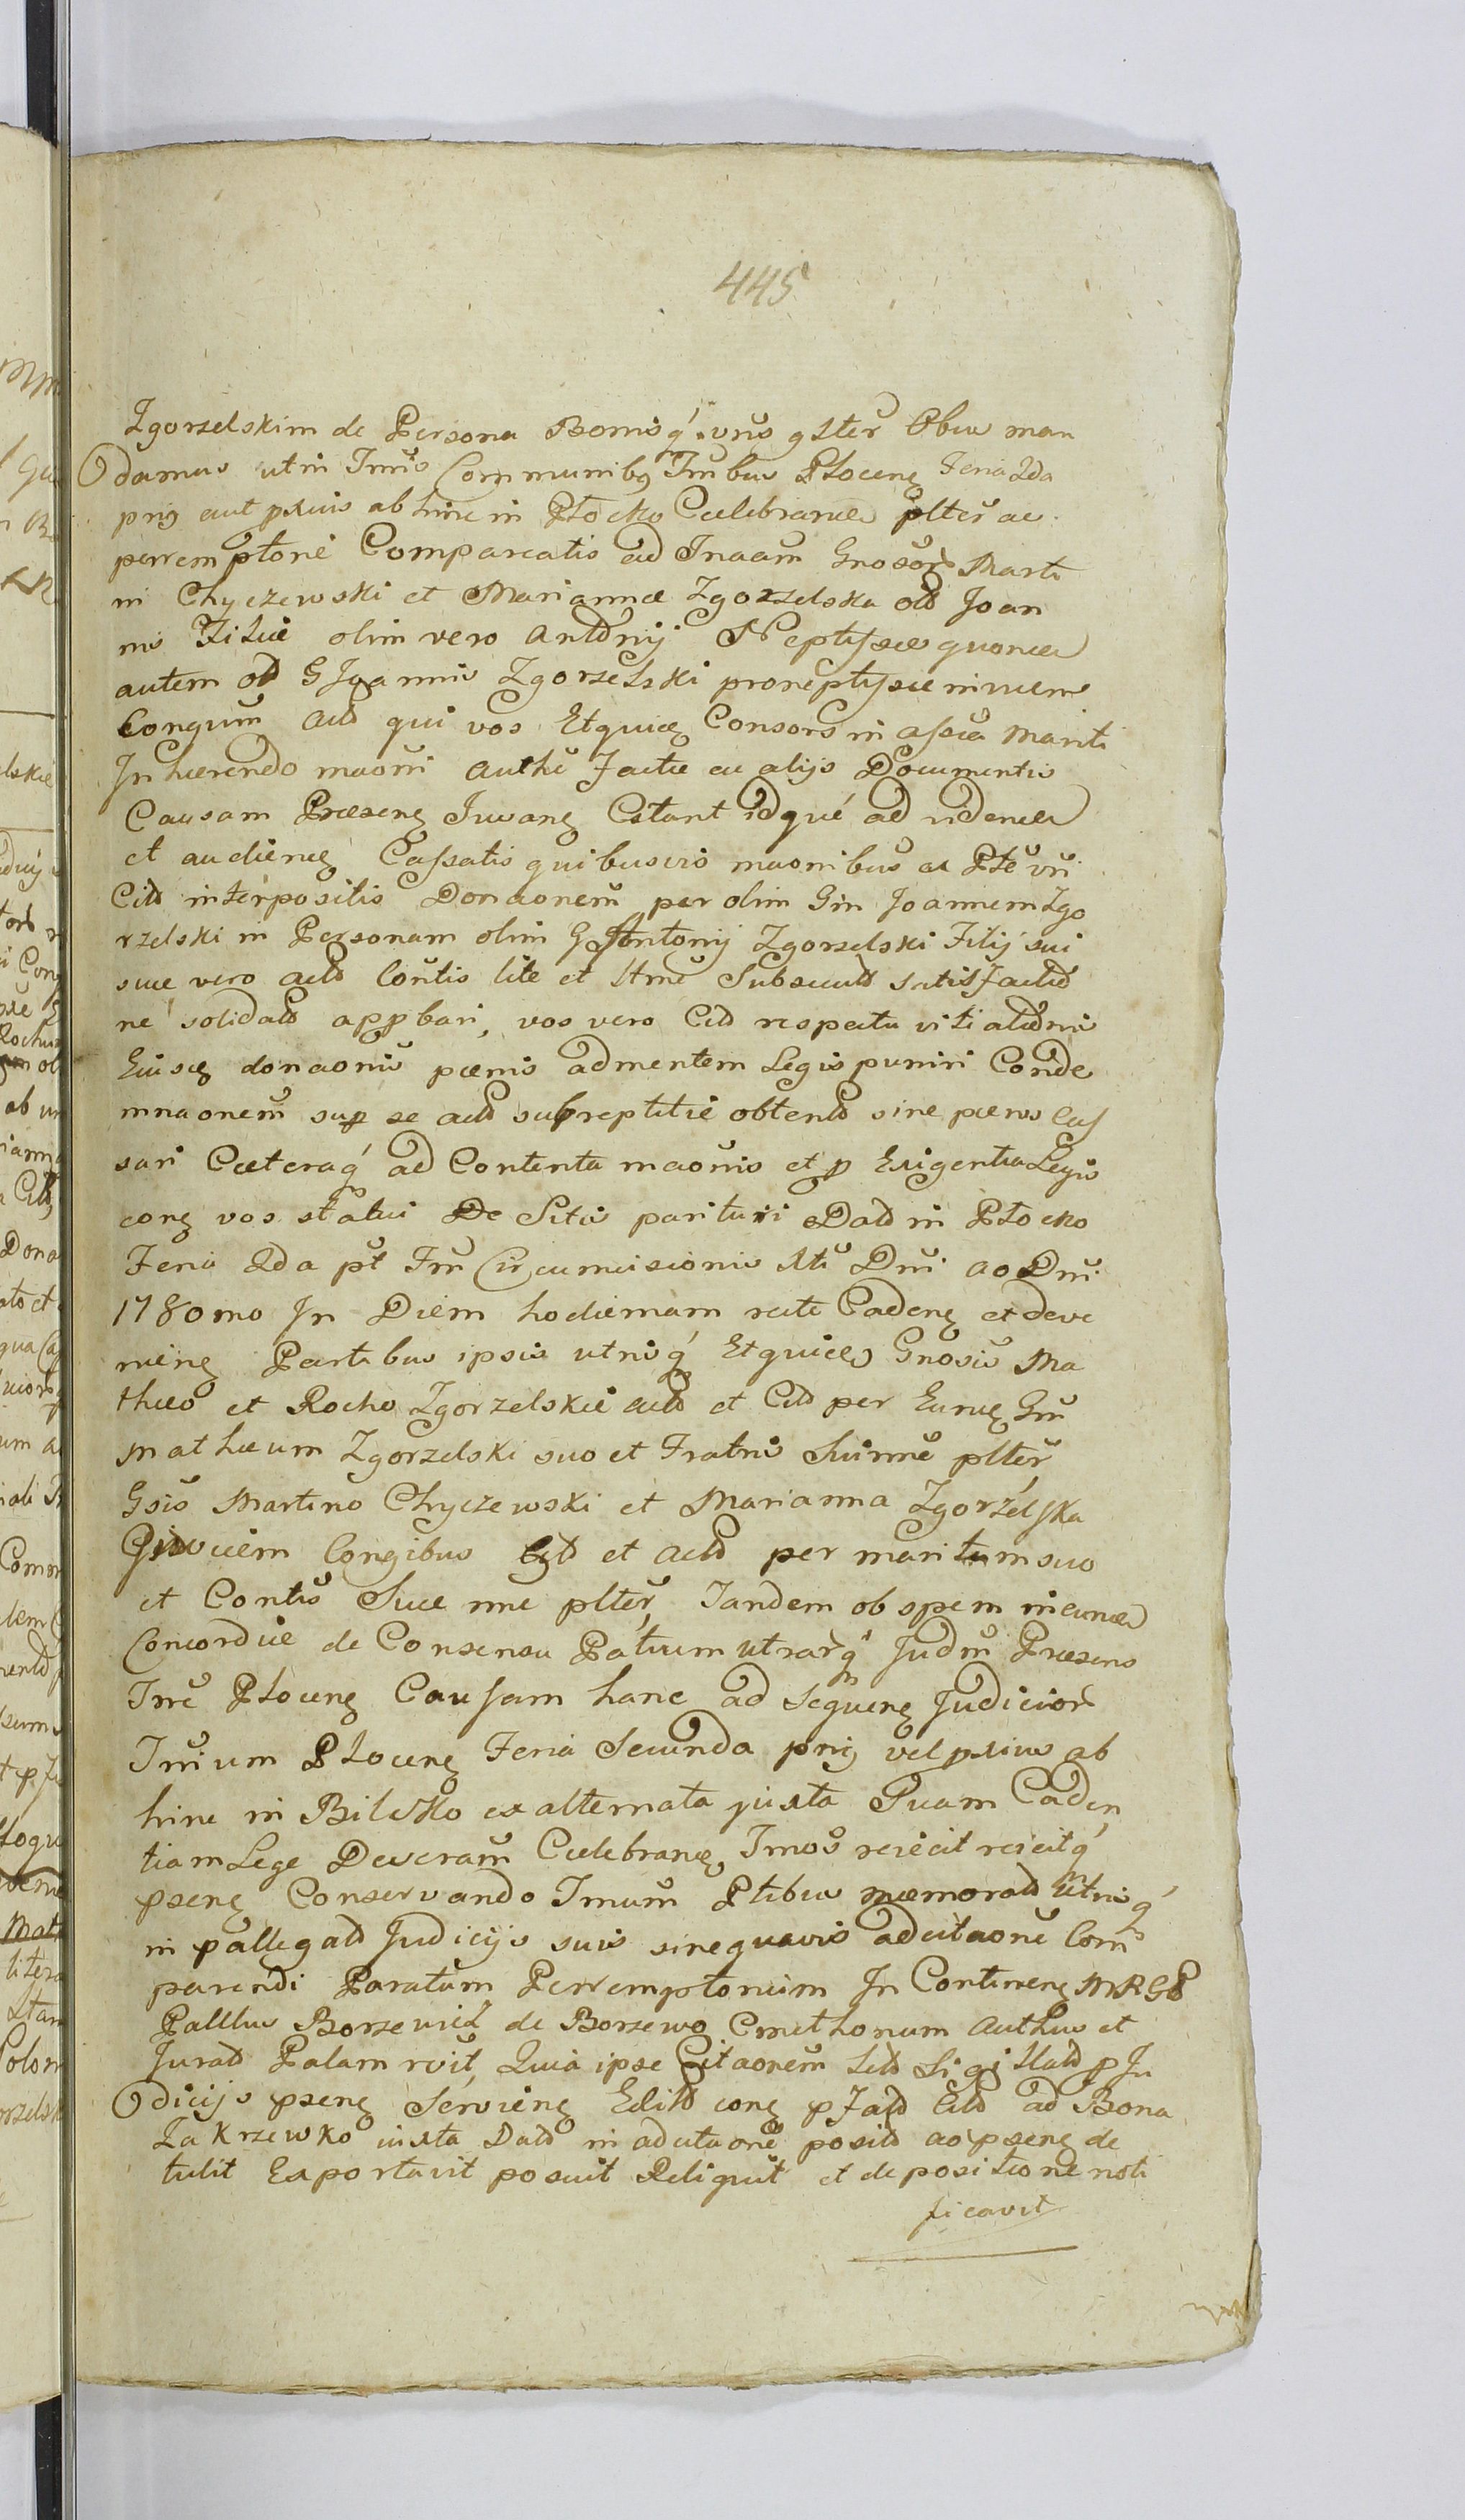 445
Zgorzelskim de Persona Bonisq́ vr̃is gl̃ter Obiu man
damus ut in Tmis Communibq Tmbus Ploceng Feria 2da
prig aut pxius ab hinc in Płocko Celebrance pl̃ter ac
perremptorie Compareatis ad Tnaam Gnosor Marti
ni Chyczewski et Mariannæ Zgorzelska old Joan
nis Filiæ olim vero Antonij Neptissæ quonce
autem old G Joannis Zgorzelski proneptissæ invicem
Congum Actd qui vos Etquice Consors in assia Mariti
Inhærendo maoni Authi Factæ ac alijs Documentis
Causam Præseng Iuvang Citant idqué ad videnda
et audieng Cassatis quibusvis maonibus ac Pte vri
Citd interpositis Donaonem per olim Gm Joannem Zgo
rzelski in Personam olim G Antonij Zgorzelski Filij sui
suæ vero actd Contis lite et Itme Subsecutd satisfactio
ne solidatd appbari, vos vero Citd respectu vitiationis
Eiusq donaonis pænis ad mentem Legis puniri Conde
mnaonem sup se actd subreptitie obtentd sine pænis Cas
sari Cæteraq́ ad Contenta maonis et p Exigentia Legis
corq vos statui De Sitis parituri Datd in Płocko
Feria 2da pt Fm Circumcisionis Xti Dni ao Dni
1780mo In Diem hodiernam recte Cadeng et deve
nieng Partibus ipsis utrisq́ Etquice Gnosis Ma
theo et Rocho Zgorzelskie actd et Citd per Eunde Gm
Mathæum Zgorzelski suo et Fratris Sui nne pl̃ter
Gsis Martino Chyczewski et Marianna Zgorzelska
invicem Congibus Citd et Actd per maritum suo
et Contis Suæ nne pl̃ter, Tandem ob spem ineunce
Concordiæ de Consensu Patium utrarq́ Judm Præsens
Trre Ploceng Causam hanc ad Sequeng Judicior
Tmium Ploceng Feria Secunda prig vel pxius ab
hinc in Bilsko ex alternata juxta Suam Caden
tiam Lege Deveram Celebrang Tmos reiecit reiicitq́
pseng Conservando Tmum Ptibus memoratd Utrisq́
in pallegatd Judicijs suis sine quavis adcitaone Com
parendi Paratum Perremptorium In Contineng MRGP
Pallus Borzewicz de Borzewo Cmethonum Authus et
Juratd Palam rvit, Quia ipse Citaonem Litd Sigillatd p Ju
dicijs pseng Servieng Editd corq pfatd Citd ad Bona
Zakrzewko iuxta Datd in adcitaone positd ao pseng de
tulit Exportavit posuit Reliquit et depositione noti
ficavit